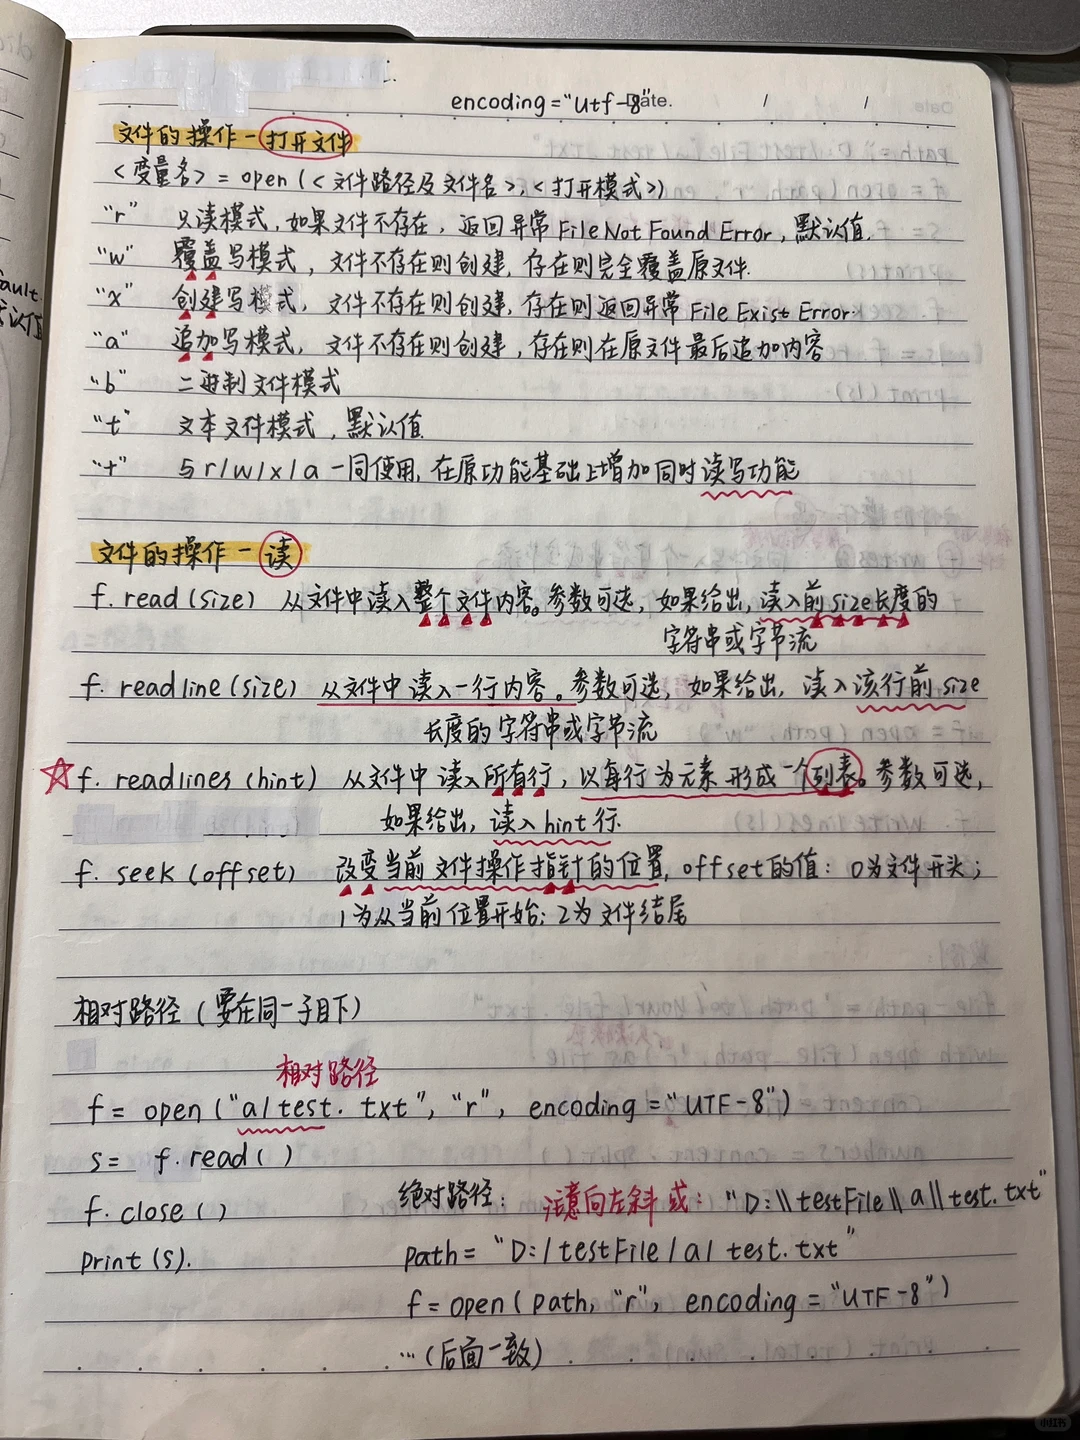 encoding="utf-8"
Date.
文件的操作-打开文件
<变量名> = open (<文件路径及文件名>, <打开模式>)
"r" 只读模式, 如果文件不存在, 返回异常 FileNotFound Error, 默认值.
"w" 覆盖写模式, 文件不存在则创建, 存在则完全覆盖原文件.
"x" 创建写模式, 文件不存在则创建, 存在则返回异常 File Exist Error.
"a" 追加写模式, 文件不存在则创建, 存在则在原文件最后追加内容
"b" 二进制文件模式
"t" 文本文件模式, 默认值.
"+" 与 r/w/x/a 一同使用, 在原功能基础上增加同时读写功能
文件的操作-读
f. read (size) 从文件中读入整个文件内容。参数可选, 如果给出, 读入前size长度的
字符串或字节流
f. readline (size) 从文件中读入一行内容。参数可选, 如果给出, 读入该行前size
长度的字符串或字节流
☆ f. readlines (hint) 从文件中读入所有行, 以每行为元素形成一个列表。参数可选,
如果给出, 读入hint行.
f. seek (offset) 改变当前文件操作指针的位置, offset的值: 0为文件开头;
1为从当前位置开始; 2为文件结尾
相对路径 (要在同一子目下)
相对路径
f = open ("a/test. txt", "r", encoding = "UTF-8")
s = f.read ( )
f. close ( )
print (s).
绝对路径: 注意向左斜 或: "D:\\testFile\\a\\test.txt"
path = "D:/testFile/a/ test.txt"
f = open ( path, "r", encoding = "UTF-8")
... (后面一致)
ault.
认值
小红书